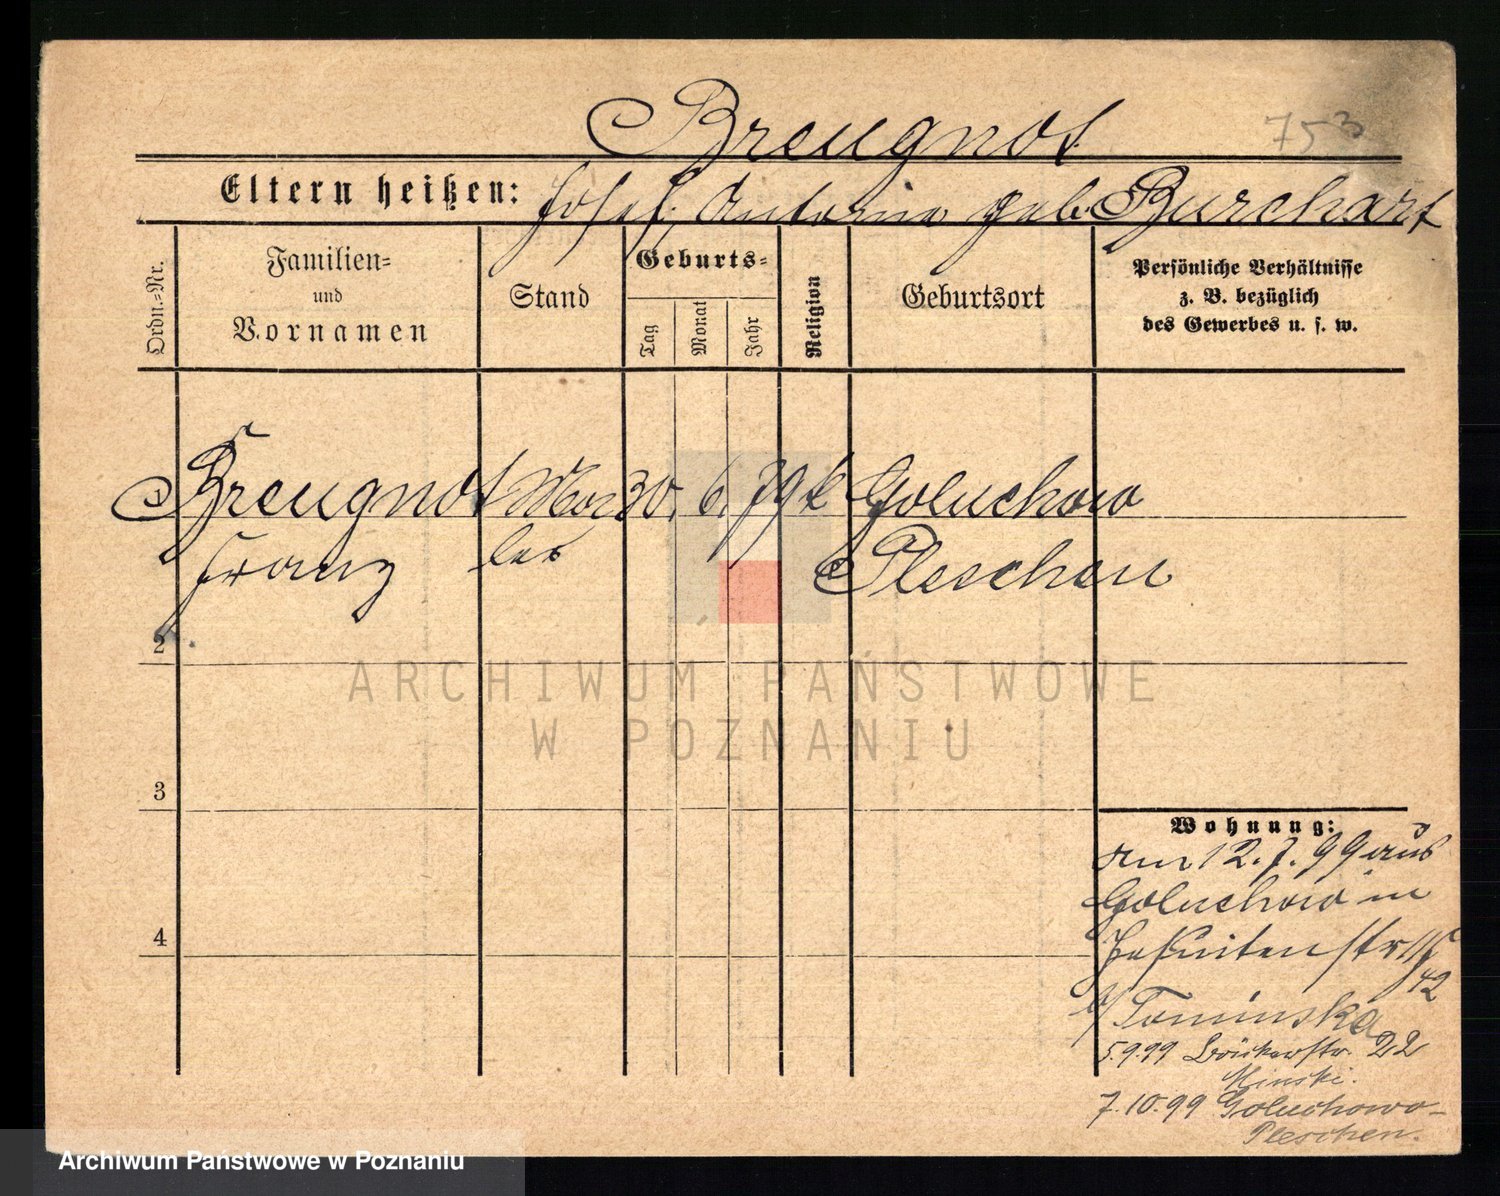 Breugnot
753
Eltern heißen: Josef, Antonie geb. Burchart
Ordn.=Nr.
Familien=
und
Vornamen
Stand
Geburts=
Tag
Monat
Jahr
Religion
Geburtsort
Persönliche Verhältnisse
z. B. bezüglich
des Gewerbes u. s. w.
1 Breugnot 30. 6. 79 k Goluchowo
Franz ler Pleschen
2
3
4
Wohnung:
am 12.7.99 aus
Goluchowo in
Jesuitenstr
42
b/ Tominska
5.9.99 Bäckerstr. 22
Minski.
7.10.99 Goluchowo-
Pleschen.
ARCHIWUM PAŃSTWOWE
W POZNANIU
Archiwum Państwowe w Poznaniu